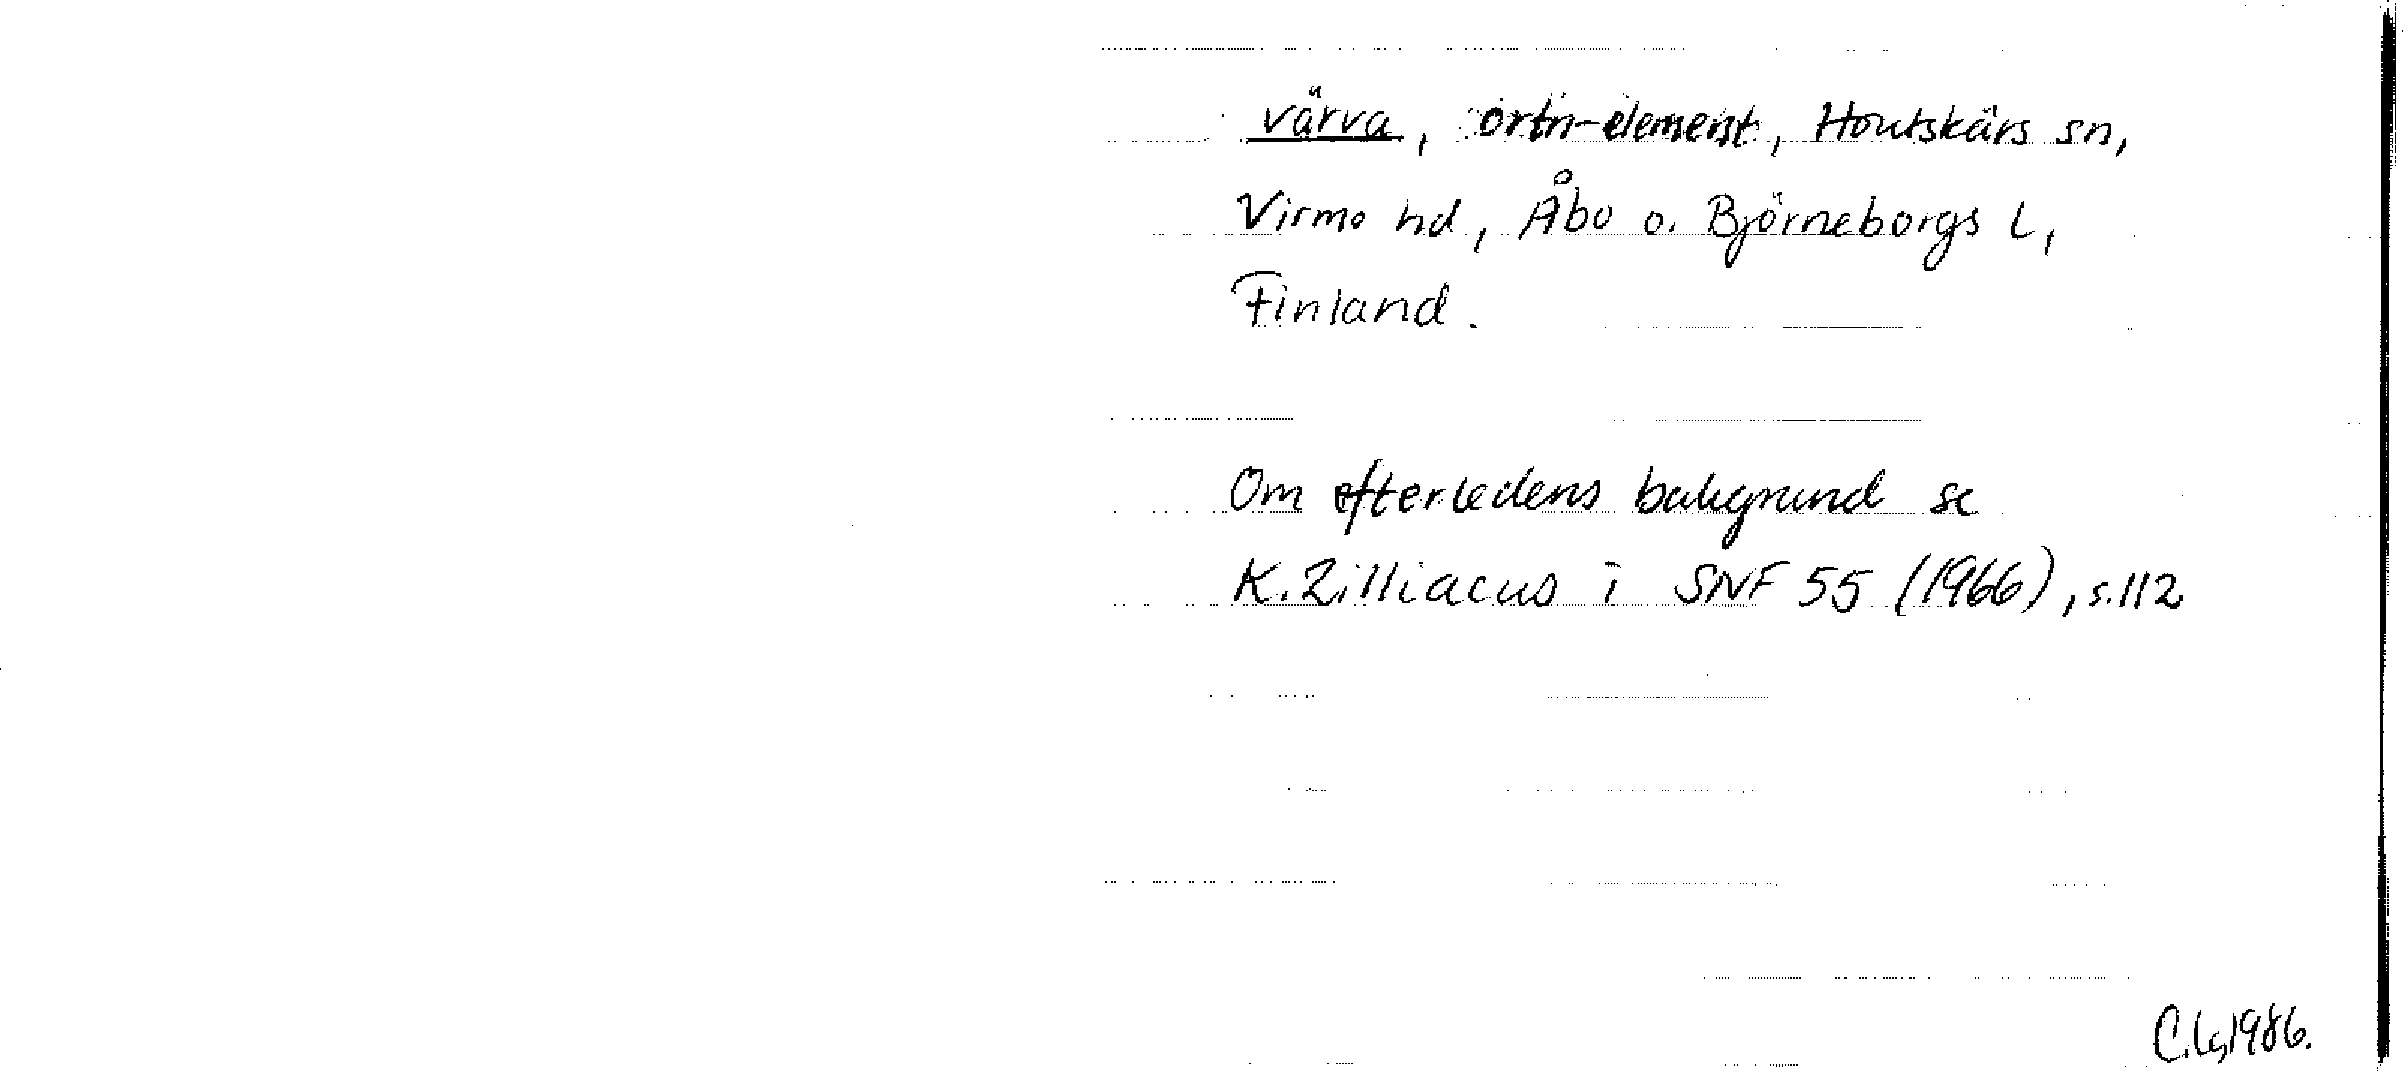 värva, ortn-element, Houtskärs sn,
Virmo hd, Åbo o. Björneborgs l,
Finland.
Om efterledens bakgrund se
K. Zilliacus i SNF 55 (1966), s. 112
1986.